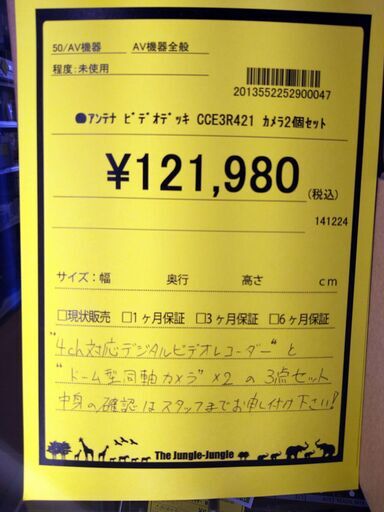 50/AV機器 AV機器全般
程度:未使用
2013552252900047
●アンテナ ビデオデッキ CCE3R421 カメラ2個セット
¥121,980(税込)
141224
サイズ:幅 奥行 高さ cm
□現状販売 □1ヶ月保証 □3ヶ月保証 □6ヶ月保証
"4ch対応デジタルビデオレコーダー"と
"ドーム型同軸カメラ"×2の3点セット
中身の確認はスタッフまでお申し付け下さい!
The Jungle-Jungle